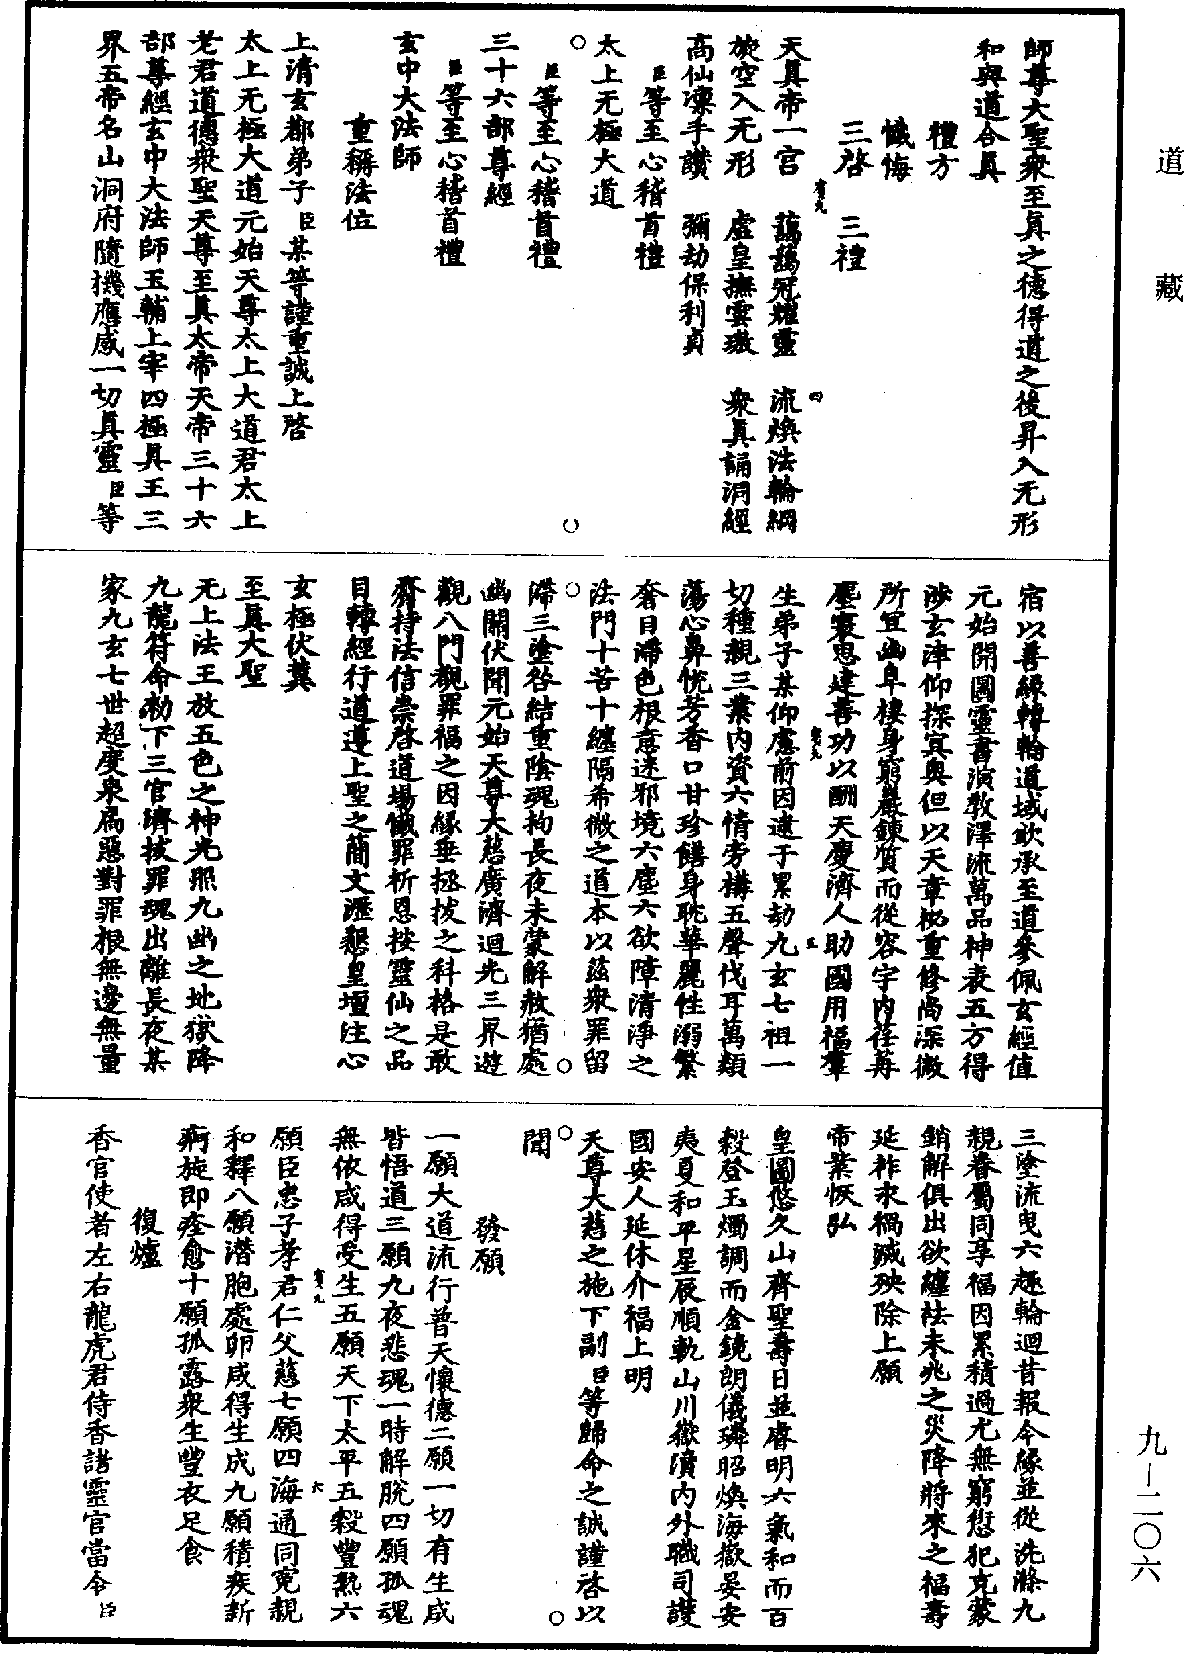 道藏
師尊大聖衆至眞之德得道之後昇入无形
和與道合眞
禮方
懺悔
三啓　三禮
天眞帝一宮　藹藹冠耀靈　流煥法輪綱
旋空入无形　虛皇撫雲璈　衆眞誦洞經
高仙凜手讚　彌劫保利貞
臣等至心稽首禮
太上无極大道
臣等至心稽首禮
三十六部尊經
臣等至心稽首禮
玄中大法師
重稱法位
上清玄都弟子臣某等謹重誠上啓
太上无極大道元始天尊太上大道君太上
老君道德衆聖天尊至眞太帝天帝三十六
部尊經玄中大法師玉輔上宰四極眞王三
界五帝名山洞府隨機應感一切眞靈臣等
宿以善緣轉輪道域欽承至道參佩玄經值
元始開圖靈書演敎澤流萬品神表五方得
涉玄津仰探寘奧但以天章祕重修尚深微
所宜幽阜棲身窮巖鍊質而從容宇內荏苒
塵寰思建善功以酬天慶濟人助國用福羣
生弟子某仰慮前因逮于累劫九玄七祖一
切種親三業內資六情旁構五聲伐耳萬類
蕩心鼻悅芳香口甘珍饍身耽華麗性溺繁
奢目滯色根意迷邪境六塵六欲障清淨之
法門十苦十纏隔希微之道本以茲衆罪留
滯三塗咎結重陰魂拘長夜未蒙解赦猶處
幽關伏聞元始天尊大慈廣濟迴光三界遊
觀八門觀罪福之因緣垂拯拔之科格是敢
齎持法信崇啓道場懺罪祈恩按靈仙之品
目轉經行道遵上聖之簡文瀝懇皇壇注心
玄極伏冀
至眞大聖
无上法王放五色之神光照九幽之地獄降
九龍符命勑下三官濟拔罪魂出離長夜某
家九玄七世超度衆扃惡對罪根無邊無量
三塗流曳六趣輪迴昔報今緣並從洗滌九
親眷屬同享福因累積過尤無窮愆犯克蒙
銷解俱出欲纏祛未兆之災降將來之福壽
延祚永禍滅殃除上願
帝業恢弘
皇圖悠久山齊聖壽日並睿明六氣和而百
穀登玉燭調而金鏡朗儀璘昭煥海嶽晏安
夷夏和平星辰順軌山川嶽瀆內外職司護
國安人延休介福上明
天尊大慈之施下副臣等歸命之誠謹啓以
聞
發願
一願大道流行普天懷德二願一切有生咸
皆悟道三願九夜悲魂一時解脫四願孤魂
無依咸得受生五願天下太平五穀豐熟六
願臣忠子孝君仁父慈七願四海通同寃親
和釋八願潛胞處卵咸得生成九願積疾新
痾旋即痊愈十願孤露衆生豐衣足食
復爐
香官使者左右龍虎君侍香諸靈官當令臣
九—二〇六